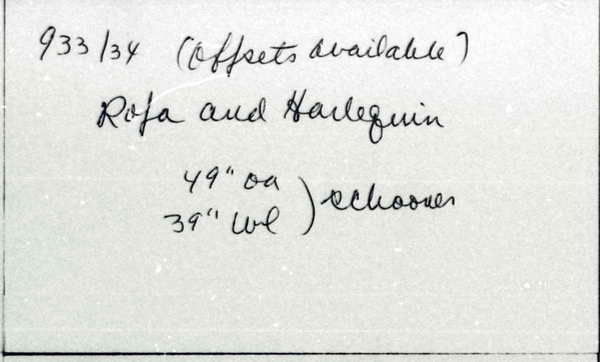 933/34 (Offsets available)
Rofa and Harlequin
49" oa
39" wl ) schooner